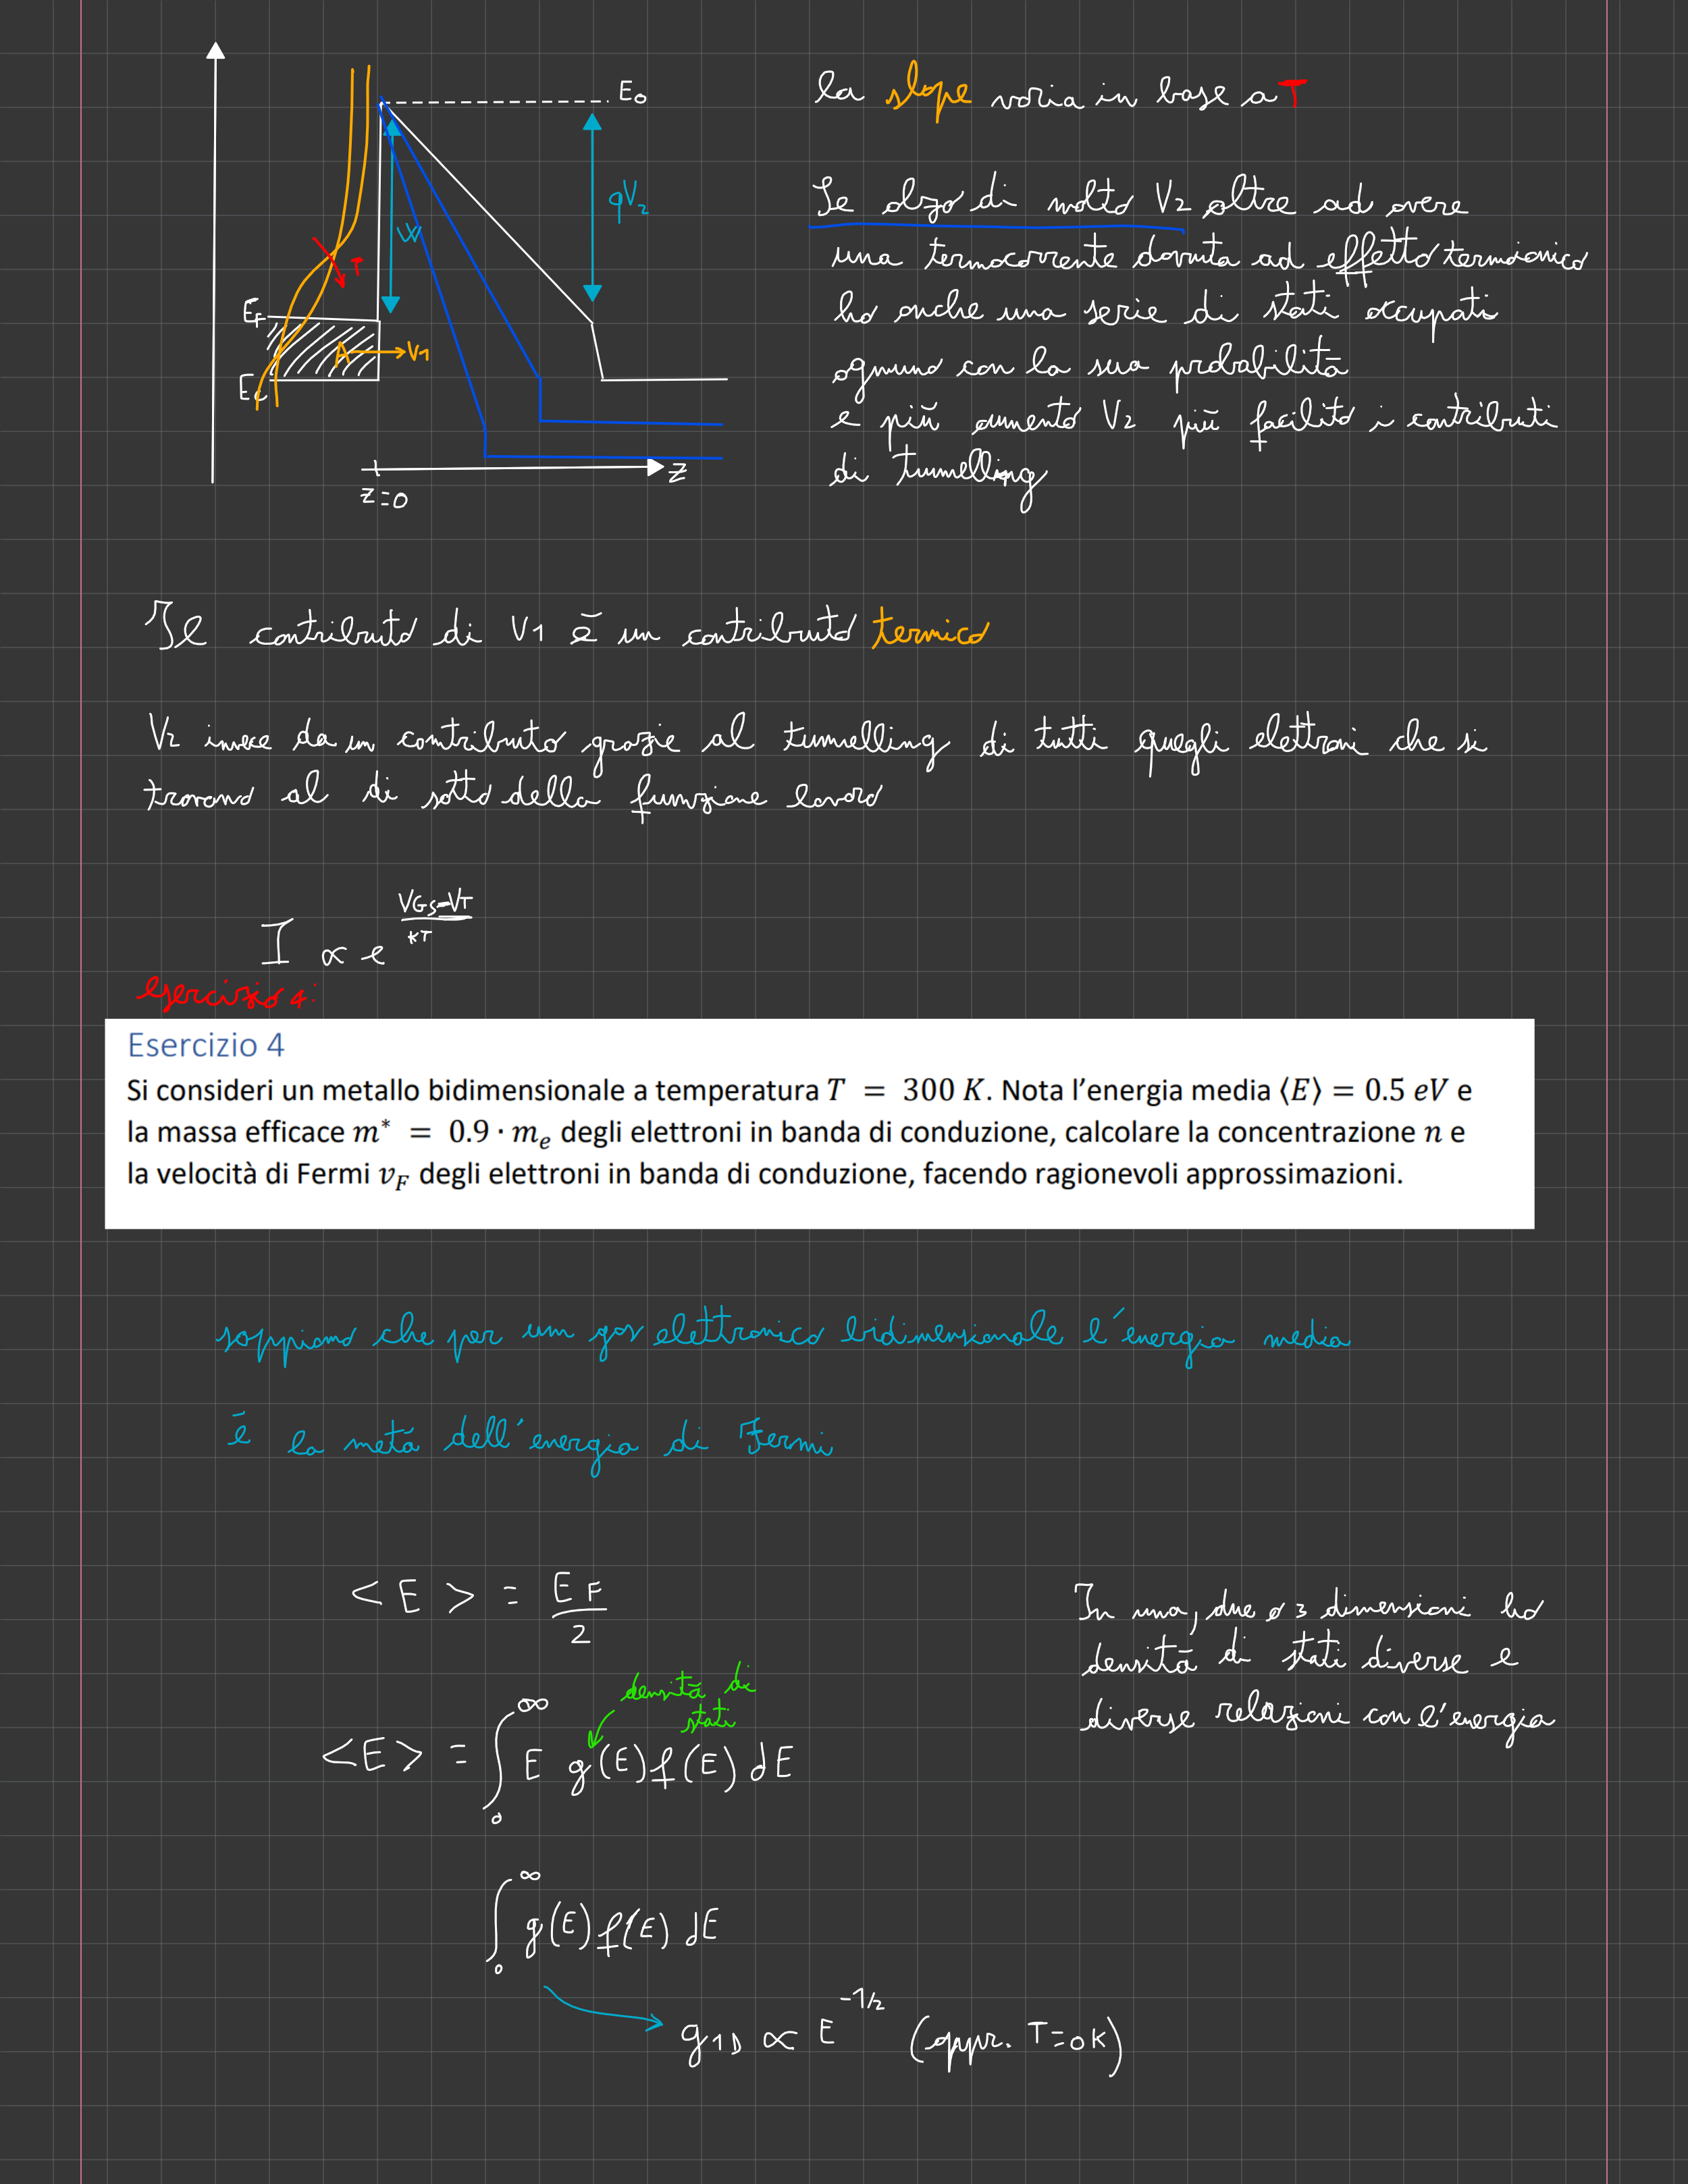 E₀
qV₂
W
T
E_F
A → V1
E_C
z=0
z
la slope varia in base a T
Se alzo di molto V₂ oltre ad avere
una termocorrente dovuta ad effetto termoionico
ho anche una serie di stati occupati
ognuno con la sua probabilità
e più aumento V₂ più facilito i contributi
di tunnelling
Il contributo di V1 è un contributo termico
V₂ invece da un contributo grazie al tunnelling di tutti quegli elettroni che si
trovano al di sotto della funzione lavoro
I ∝ e^((VGS-VT)/KT)
esercizio 4:
Esercizio 4
Si consideri un metallo bidimensionale a temperatura T = 300 K. Nota l'energia media ⟨E⟩ = 0.5 eV e
la massa efficace m* = 0.9 · mₑ degli elettroni in banda di conduzione, calcolare la concentrazione n e
la velocità di Fermi v_F degli elettroni in banda di conduzione, facendo ragionevoli approssimazioni.
sappiamo che per un gas elettronico bidimensionale l'energia media
è la metà dell'energia di Fermi
<E> = E_F/2
In una, due o 3 dimensioni ho
densità di stati diverse e
diverse relazioni con l'energia
densità di
stati
<E> = ∫₀^∞ E g(E) f(E) dE
∫₀^∞ g(E) f(E) dE
g₁D ∝ E^(-1/2) (appr. T=0K)